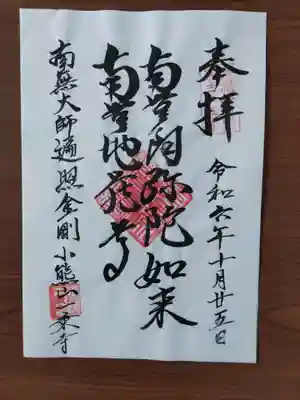 奉拝
令和六年十月廿五日
南無阿弥陀如来
南無地蔵尊
南無大師遍照金剛 小熊山一乗寺